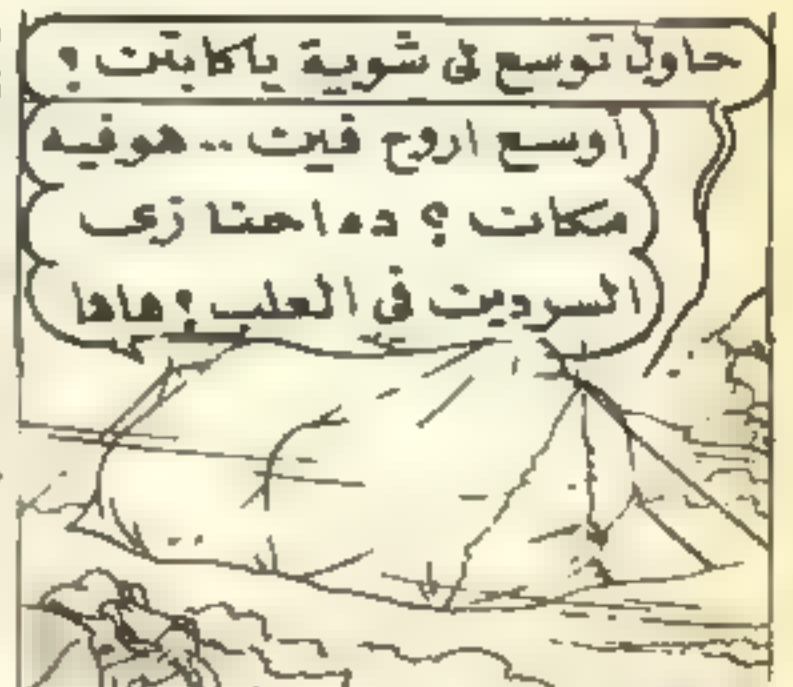 حاول توسع لى شوية ياكابتن ؟
اوسع اروح فين .. هو فيه
مكان ؟ ده احنا زى
السردين فى العلب ؟ هاها